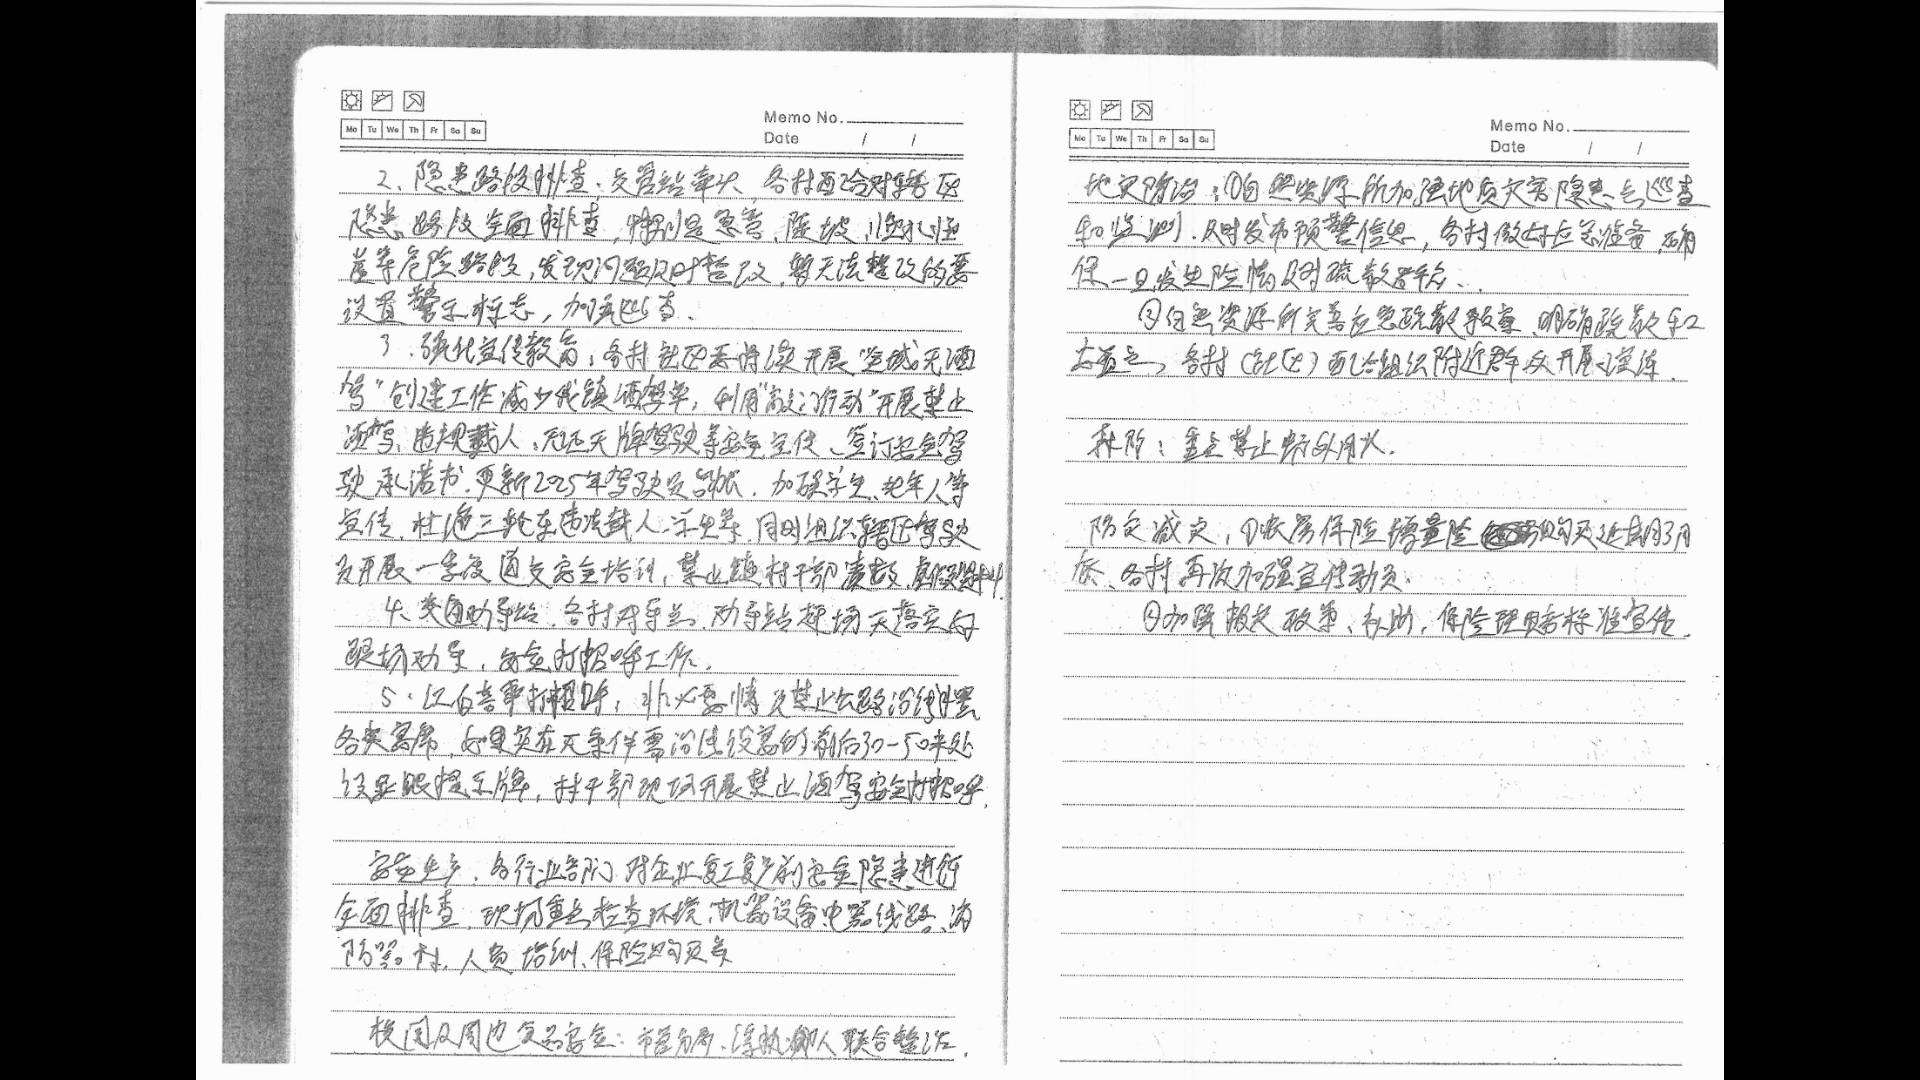 Memo No.
Mo Tu We Th Fr Sa Su
Date / /
2、隐患路段排查:交管站牵头、各村配合对辖区
隐患路段全面排查,特别是急弯、陡坡、临水临
崖等危险路段,发现问题及时整改,暂无法整改的要
设置警示标志,加强巡查.
3.强化宣传教育:各村社区要持续开展"全域无酒
驾"创建工作减少我镇酒驾率,利用"敲门行动"开展禁止
酒驾、违规载人、无证无牌驾驶等安全宣传、签订安全驾
驶承诺书.更新2025年驾驶员台帐.加强学生、老年人等
宣传.杜绝三轮车违法载人.学生等.同时组织辖区驾驶
员开展一季度道交安全培训,禁止镇村干部凑数,虚假
4、劝导站.各村劝导员.劝导站赶场天落实好
现场劝导,安全打招呼工作.
5.红白喜事打招呼:非必要情况禁止公路沿线
各类宴席,如果实在无条件需沿线设宴的前后30-50米处
设显眼提示牌,村干部现场开展禁止酒驾安全打招呼.
安全生产.各行业部门对企业复工复产前安全隐患进行
全面排查.现场重点检查环境、机器设备电器线路、消
防器材.人员培训、保险购买等
校园及周边食品安全:市管分局、综执 联合整治.
Memo No.
Mo Tu We Th Fr Sa Su
Date / /
地灾防治:①自然资源所加强地质灾害隐患点巡查
和监测.及时发布预警信息,各村做好应急准备,确
保一旦发生险情及时疏散群众..
②自然资源所完善应急疏散预案.明确疏散和
安置点,各村(社区)配合组织附近群众开展演练.
森防:重点禁止野外用火.
防灾减灾,①农房保险增量险 购买延期3月
底、各村再次加强宣传动员.
②加强报灾政策、补助,保险理赔标准宣传.